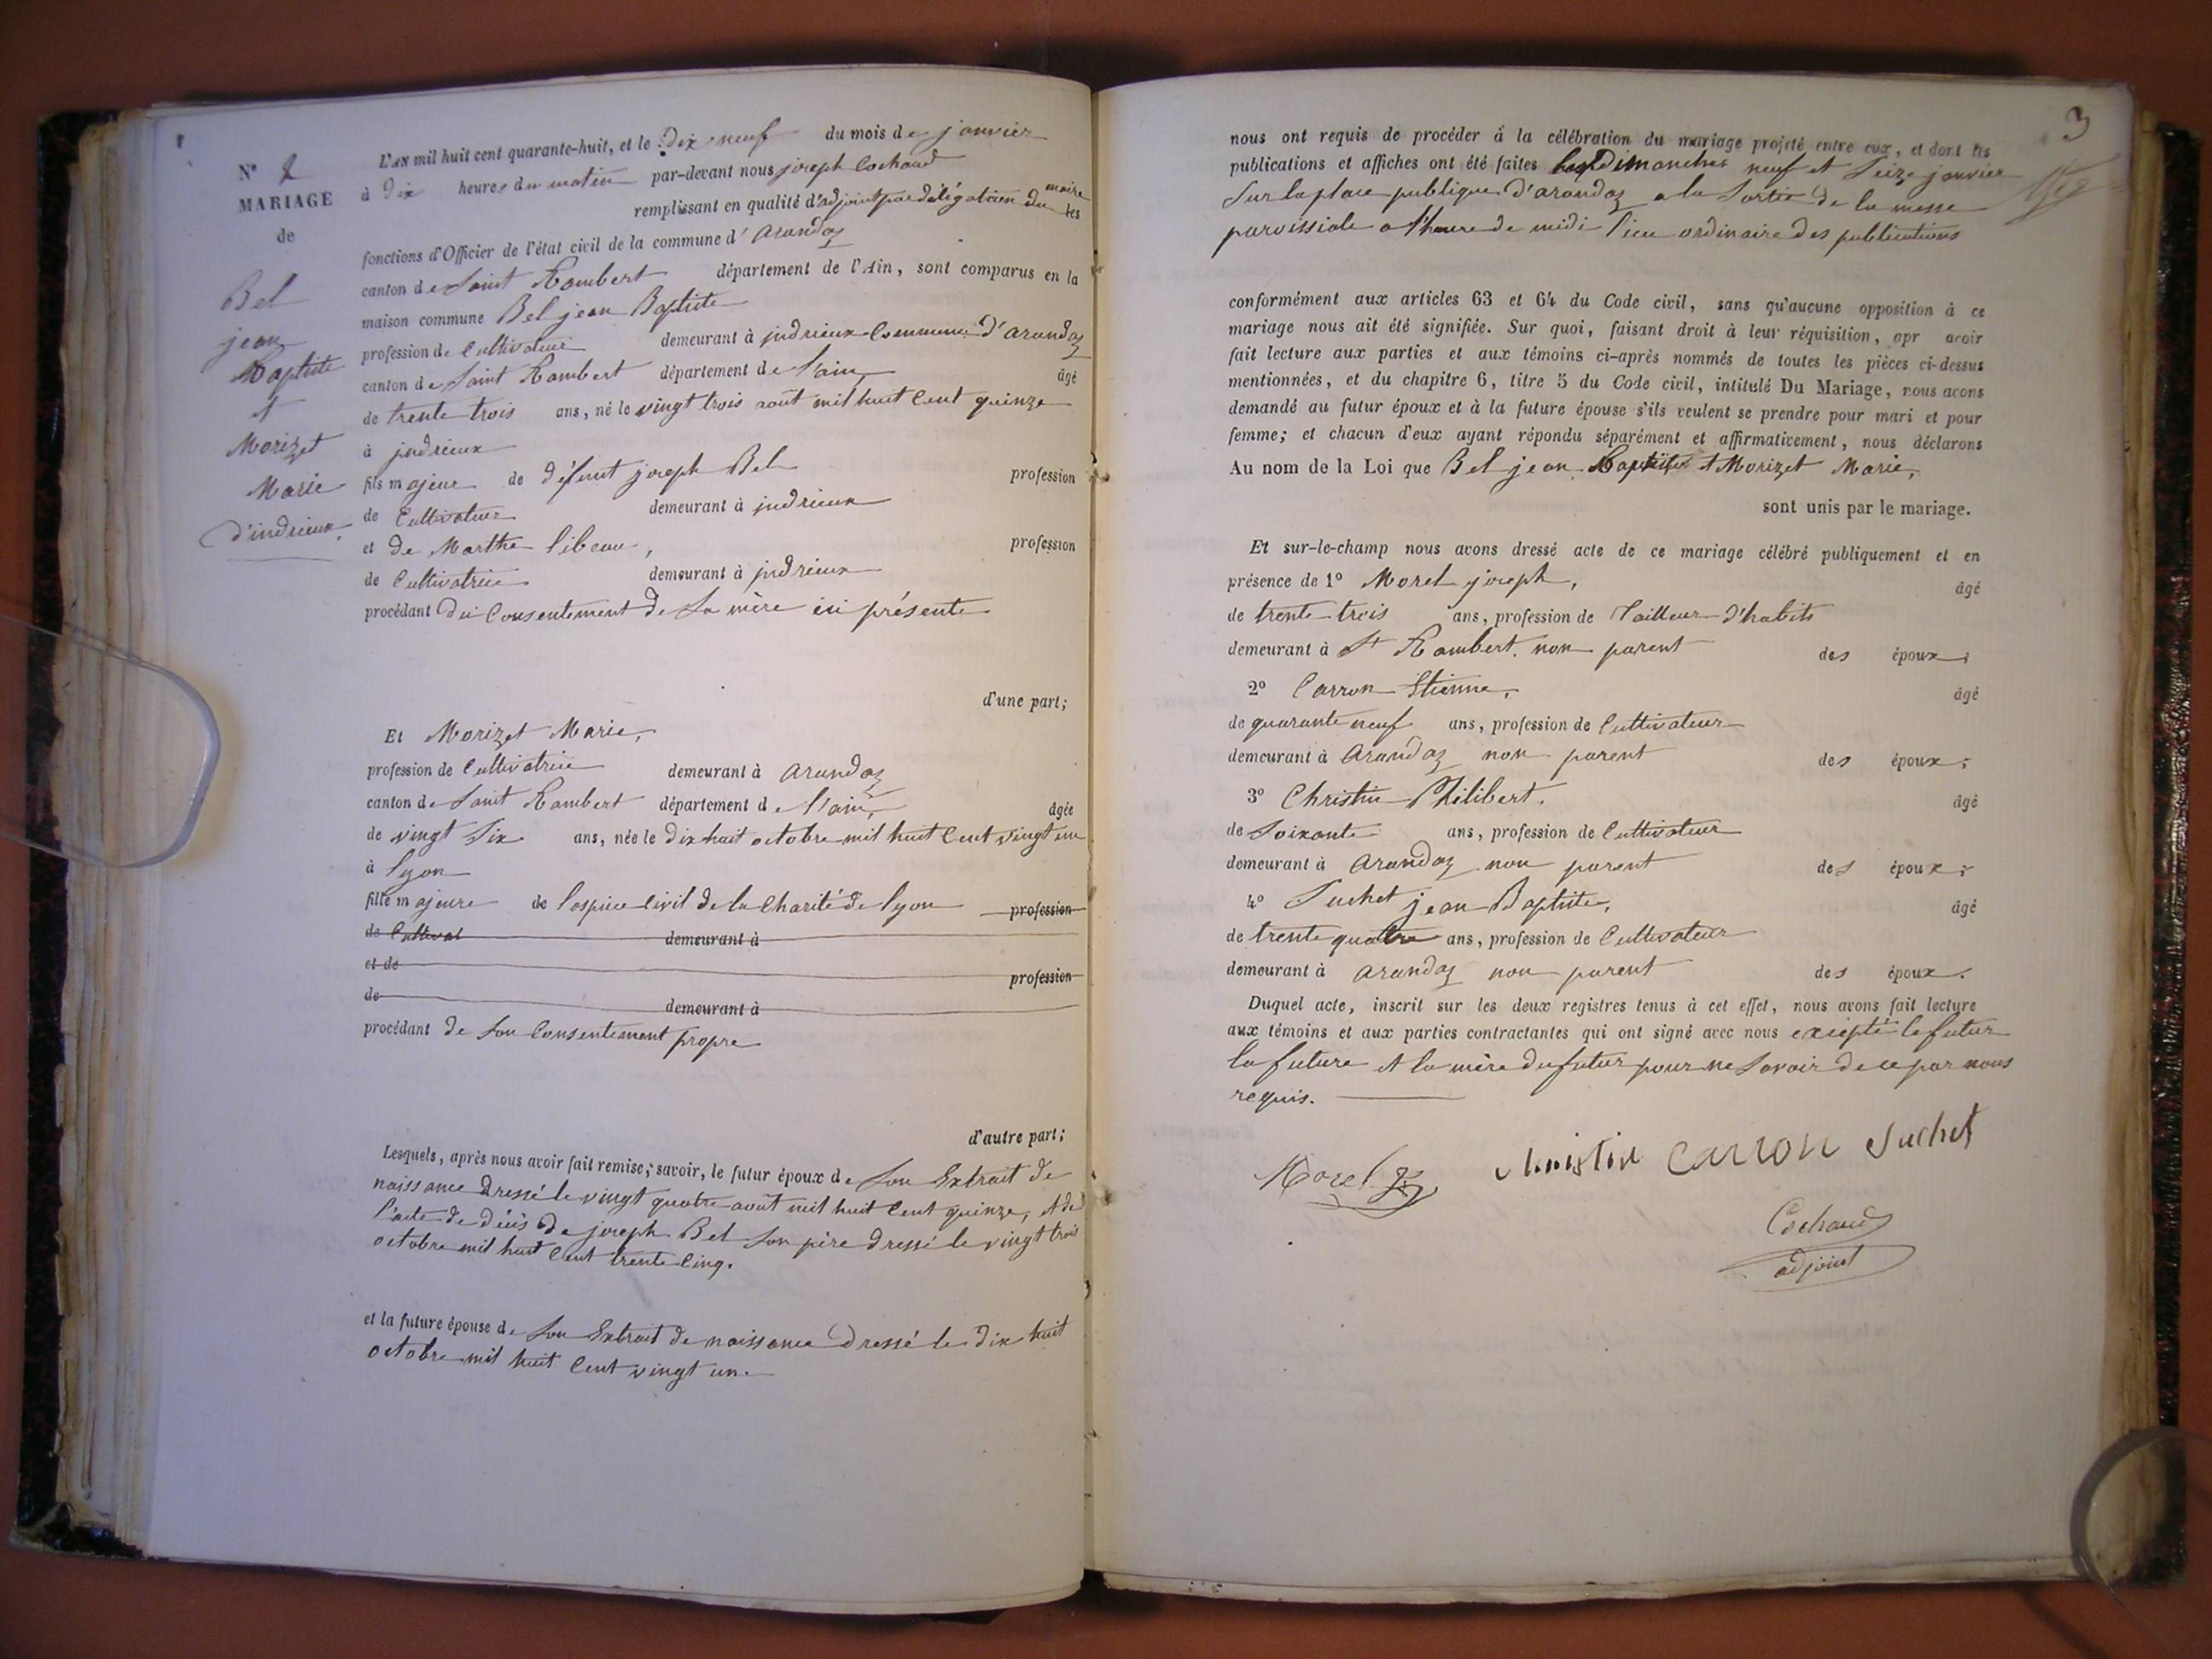 N° 2
MARIAGE
de
Bel
jean
Baptiste
et
Morizet
Marie
d'indrieux.
L'AN mil huit cent quarante-huit, et le dix neuf du mois de janvier
à dix heures du matin par-devant nous joseph Cochaud
remplissant en qualité d'adjoint par délégation du maire les
fonctions d'Officier de l'état civil de la commune d' Arandaz
canton de Saint Rambert département de l'Ain, sont comparus en la
maison commune Bel jean Baptiste
profession de Cultivateur demeurant à indrieux Commune d'arandaz
canton de Saint Rambert département de l'ain, âgé
de trente trois ans, né le vingt trois août mil huit Cent quinze
à indrieux
fils majeur de défunt joseph Bel profession
de Cultivateur demeurant à indrieux
et de Marthe Libeau, profession
de Cultivatrice demeurant à indrieux
procédant du Consentement de Sa mère ici présente
d'une part;
Et Morizet Marie,
profession de Cultivatrice demeurant à Arandaz
canton de Saint Rambert département de l'ain, âgée
de vingt Six ans, née le dix huit octobre mil huit Cent vingt un
à Lyon
fille majeure de l'ospice Civil de la Charité de Lyon profession
de Cultivat demeurant à
et de profession
de demeurant à
procédant de Son Consentement propre
d'autre part;
Lesquels, après nous avoir fait remise; savoir, le futur époux de Son Extrait de
naissance dressé le vingt quatre août mil huit Cent quinze, et de
l'acte de décès de joseph Bel Son père dressé le vingt trois
octobre mil huit Cent trente Cinq.
et la future épouse de Son Extrait de naissance dressé le dix huit
octobre mil huit Cent vingt un.
3
nous ont requis de procéder à la célébration du mariage projeté entre eux, et dont les
publications et affiches ont été faites les Dimanches neuf et Seize janvier
Sur la place publique d'arandaz a la Sortie de la messe
paroissiale a l'heure de midi lieu ordinaire des publications
conformément aux articles 63 et 64 du Code civil, sans qu'aucune opposition à ce
mariage nous ait été signifiée. Sur quoi, faisant droit à leur réquisition, apr avoir
fait lecture aux parties et aux témoins ci-après nommés de toutes les pièces ci-dessus
mentionnées, et du chapitre 6, titre 5 du Code civil, intitulé Du Mariage, nous avons
demandé au futur époux et à la future épouse s'ils veulent se prendre pour mari et pour
femme; et chacun d'eux ayant répondu séparément et affirmativement, nous déclarons
Au nom de la Loi que Bel jean Baptiste et Morizet Marie,
sont unis par le mariage.
Et sur-le-champ nous avons dressé acte de ce mariage célébré publiquement et en
présence de 1° Morel joseph, âgé
de trente trois ans, profession de Tailleur d'habits
demeurant à St Rambert. non parent des époux;
2° Carron Etienne, âgé
de quarante neuf ans, profession de Cultivateur
demeurant à Arandaz non parent des époux;
3° Christin Philibert. âgé
de Soixante ans, profession de Cultivateur
demeurant à Arandaz non parent des époux;
4° Suchet jean Baptiste, âgé
de trente quatre ans, profession de Cultivateur
demeurant à Arandaz non parent des époux.
Duquel acte, inscrit sur les deux registres tenus à cet effet, nous avons fait lecture
aux témoins et aux parties contractantes qui ont signé avec nous excepté le futur
la future et la mère du futur pour ne Savoir de ce par nous
requis.
Morel Christin Carron Suchet
Cochaud
adjoint